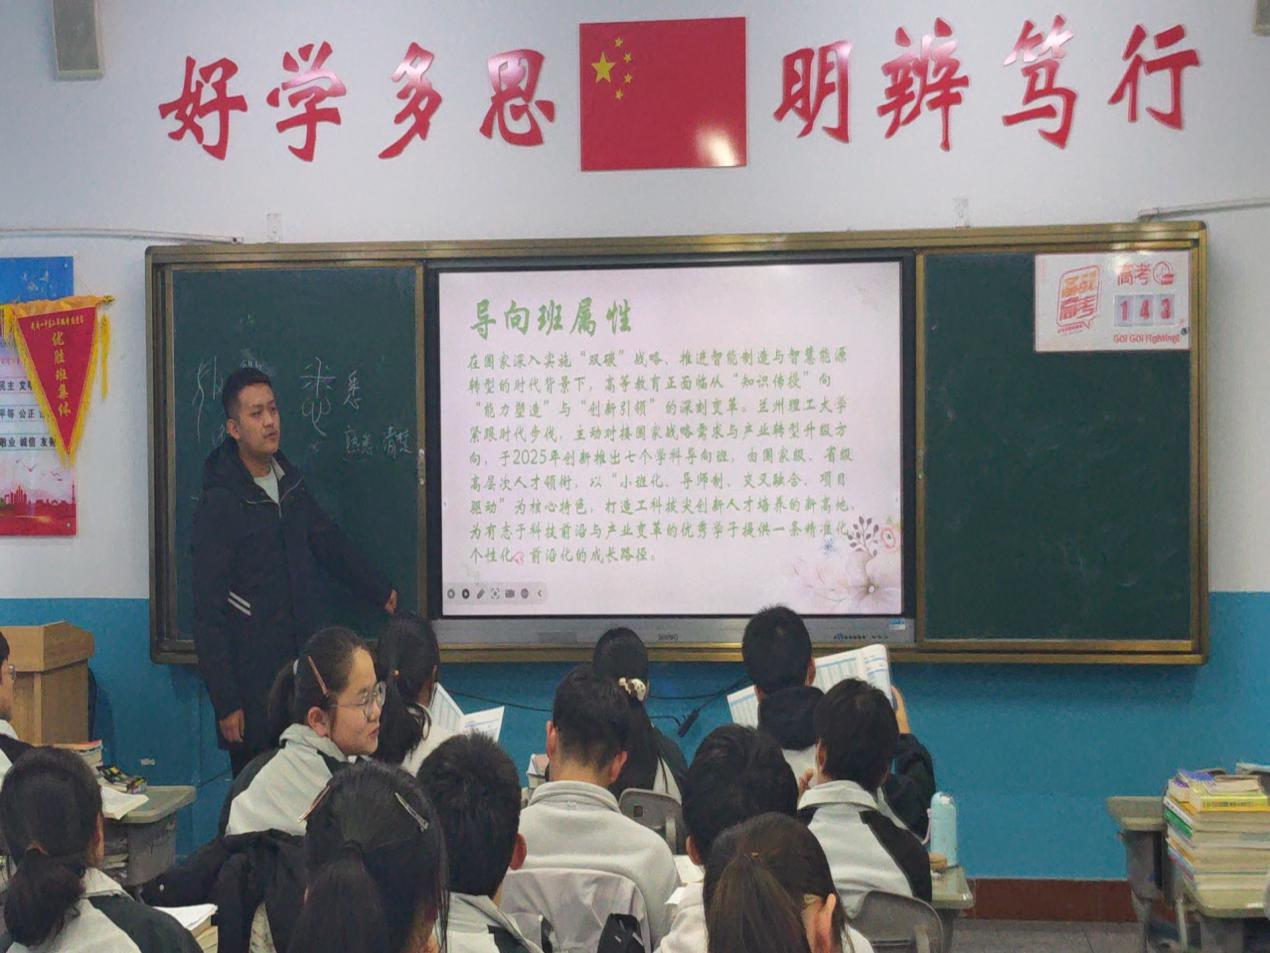 好学多思 明辨笃行
优胜班集体
民主 文明
平等 公正
敬业 诚信 友善
导向班属性
在国家深入实施“双碳”战略、推进智能制造与智慧能源
转型的时代背景下，高等教育正面临从“知识传授”向
“能力塑造”与“创新引领”的深刻变革。兰州理工大学
紧跟时代步伐，主动对接国家战略需求与产业转型升级方
向，于2025年创新推出七个学科导向班，由国家级、省级
高层次人才领衔，以“小班化、导师制、交叉融合、项目
驱动”为核心特色，打造工科拔尖创新人才培养的新高地。
为有志于科技前沿与产业变革的优秀学子提供一条精准化、
个性化、前沿化的成长路径。
高考
143
GO! GO! Fighting!